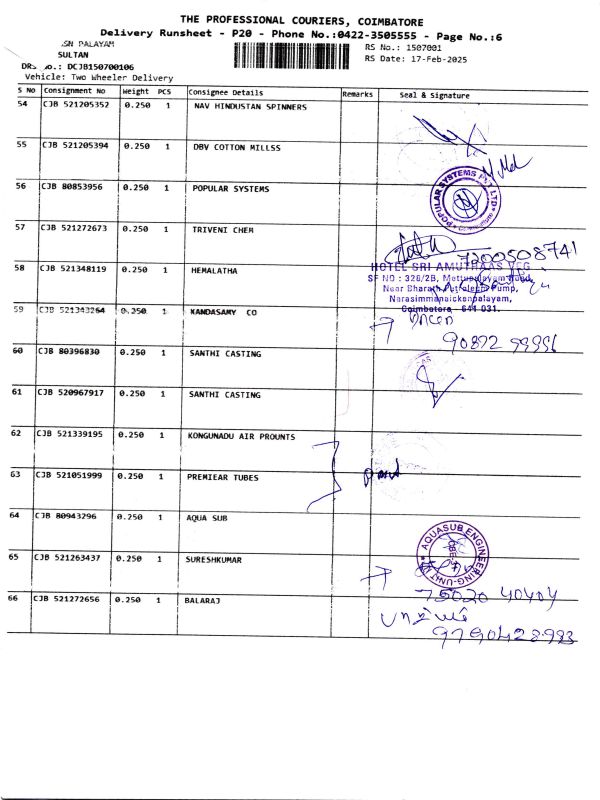 THE PROFESSIONAL COURIERS, COIMBATORE
Delivery Runsheet - P20 - Phone No.:0422-3505555 - Page No.:6
GSN PALAYAM
RS No.: 1507001
SULTAN
RS Date: 17-Feb-2025
DRS No.: DCJB150700106
Vehicle: Two Wheeler Delivery
S No Consignment No Weight PCS Consignee Details Remarks Seal & Signature
54 CJB 521205352 0.250 1 NAV HINDUSTAN SPINNERS
55 CJB 521205394 0.250 1 DBV COTTON MILLSS
56 CJB 80853956 0.250 1 POPULAR SYSTEMS
POPULAR SYSTEMS PVT LTD
57 CJB 521272673 0.250 1 TRIVENI CHEM
7200508741
58 CJB 521348119 0.250 1 HEMALATHA
HOTEL SRI AMUTHAAS VEG
SF NO : 326/2B, Mettupalayam Road,
Near Bharath Petroleum Pump,
Narasimmanaickenpalayam,
Coimbatore - 641 031.
59 CJB 521343264 0.250 1 KANDASAMY CO
60 CJB 80396830 0.250 1 SANTHI CASTING
61 CJB 520967917 0.250 1 SANTHI CASTING
62 CJB 521339195 0.250 1 KONGUNADU AIR PROUNTS
63 CJB 521051999 0.250 1 PREMIEAR TUBES
64 CJB 80943296 0.250 1 AQUA SUB
AQUASUB ENGINEERING-UNIT II
CBE
65 CJB 521263437 0.250 1 SURESHKUMAR
75020 40404
66 CJB 521272656 0.250 1 BALARAJ
9790428983